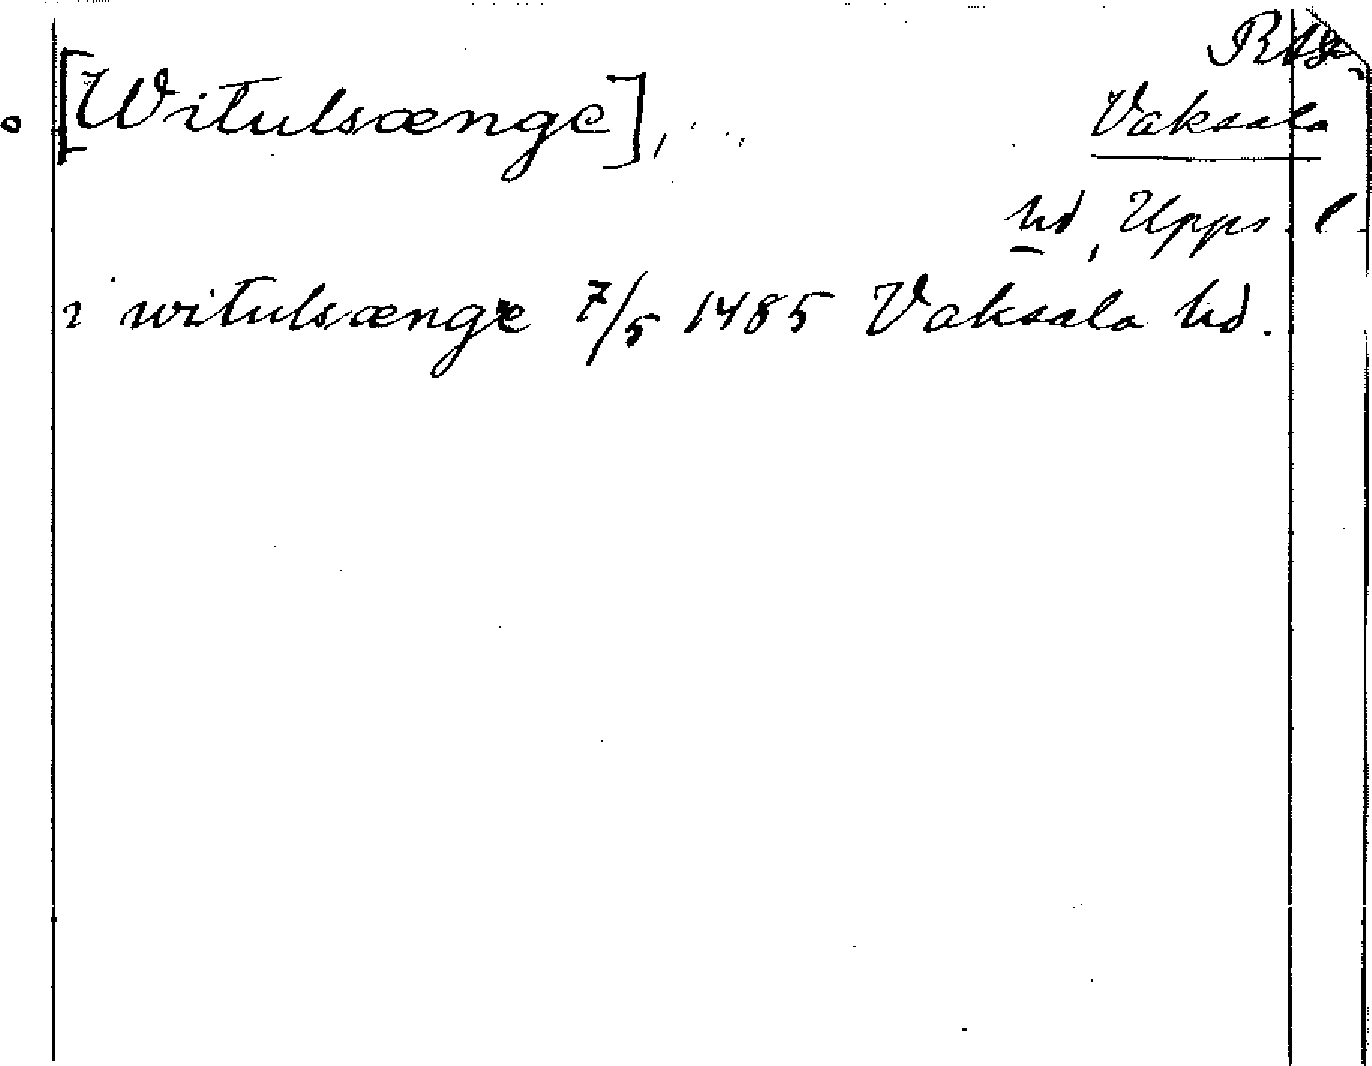 [Witulsænge],
Vaksala
hd, Upps. l.
i witulsænge 7/5 1485 Vaksala hd.